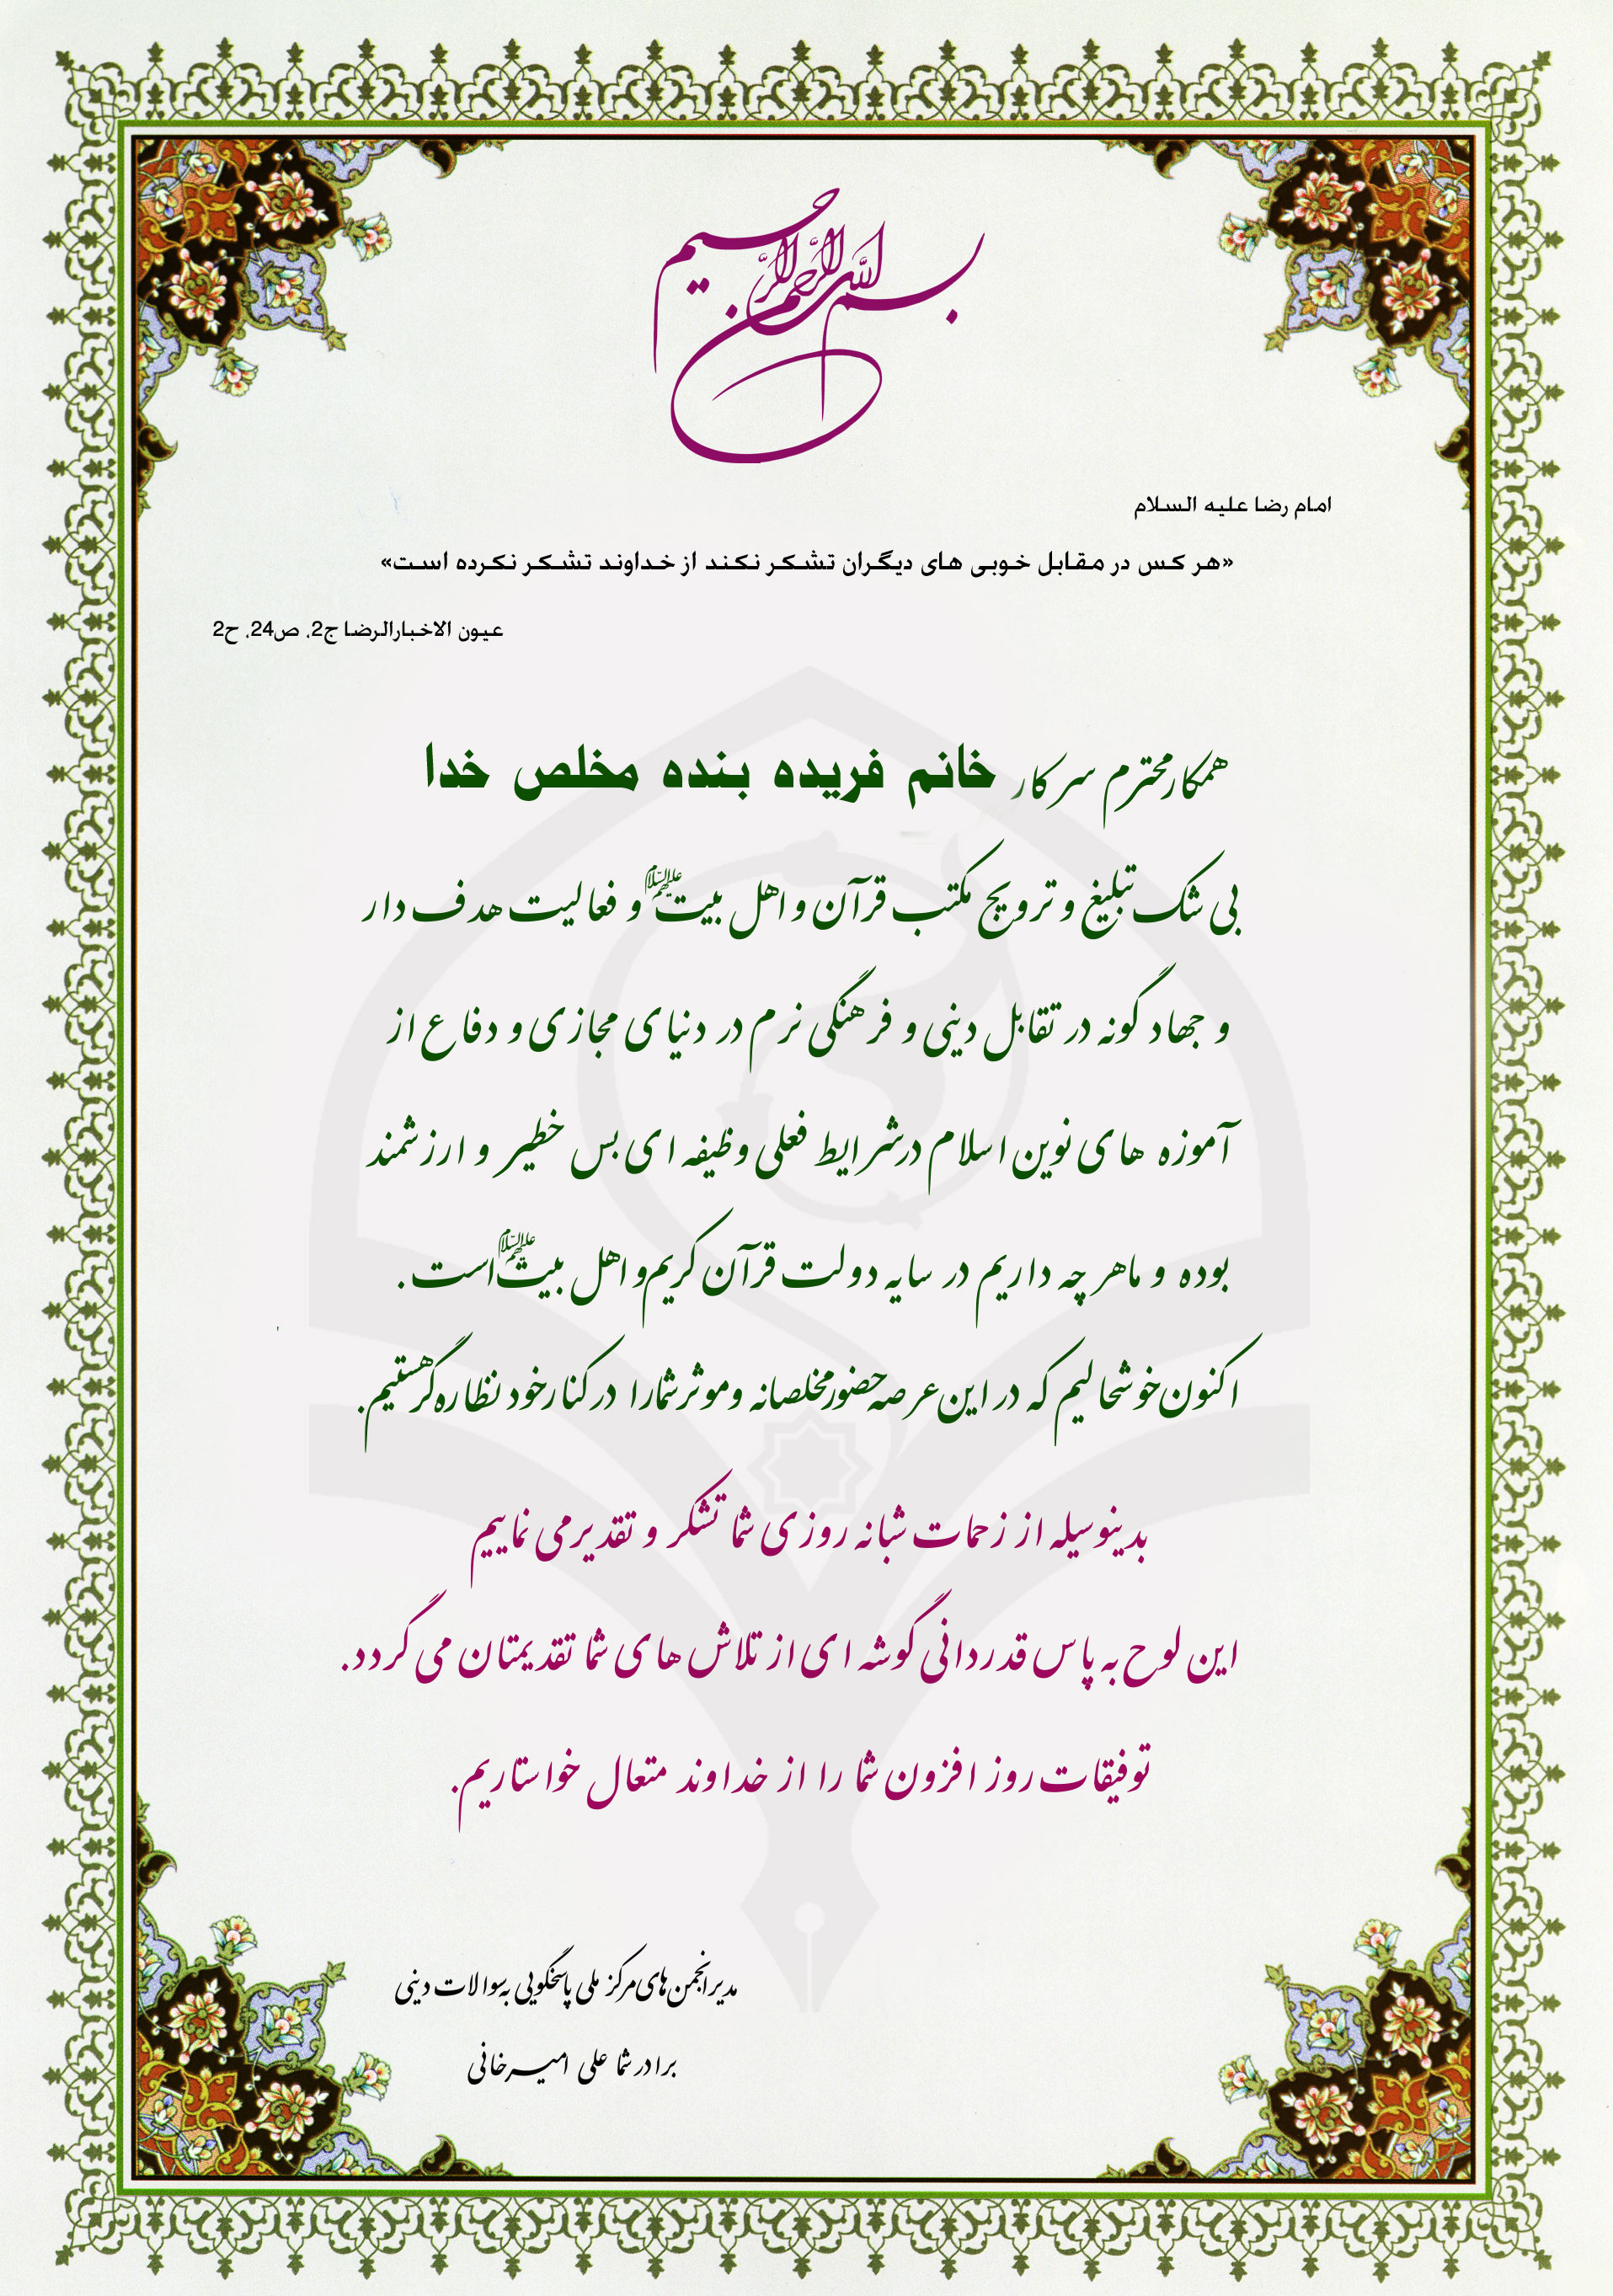 بسم الله الرحمن الرحیم
امام رضا علیه السلام
«هر کس در مقابل خوبی های دیگران تشکر نکند از خداوند تشکر نکرده است»
عیون الاخبارالرضا ج2، ص24، ح2
همکارمحترم سرکار خانم فریده بنده مخلص خدا
بی شک تبلیغ و ترویج مکتب قرآن و اهل بیت علیهم السلام و فعالیت هدف دار
و جهاد گونه در تقابل دینی و فرهنگی نرم در دنیای مجازی و دفاع از
آموزه های نوین اسلام درشرایط فعلی وظیفه ای بس خطیر و ارزشمند
بوده و ماهر چه داریم در سایه دولت قرآن کریم و اهل بیت علیهم السلام است.
اکنون خوشحالیم که در این عرصه حضور مخلصانه و موثر شما را در کنار خود نظاره گر هستیم.
بدینوسیله از زحمات شبانه روزی شما تشکر و تقدیر می نماییم
این لوح به پاس قدردانی گوشه ای از تلاش های شما تقدیمتان می گردد.
توفیقات روز افزون شما را از خداوند متعال خواستاریم.
مدیر انجمن های مرکز ملی پاسخگویی به سوالات دینی
برادر شما علی امیرخانی